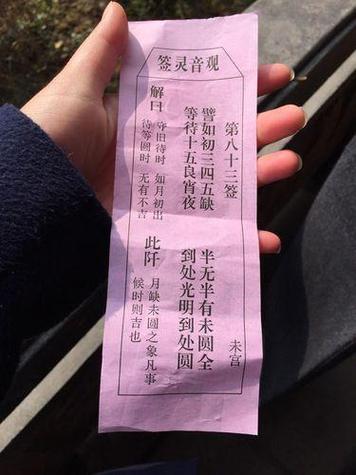 观音灵签
第八十三签 未宫
譬如初三四五缺 半无半有未圆全
等待十五良宵夜 到处光明到处圆
解曰
守旧待时 如月初出
待等圆时 无有不吉
此阡
月缺未圆之象凡事
候时则吉也